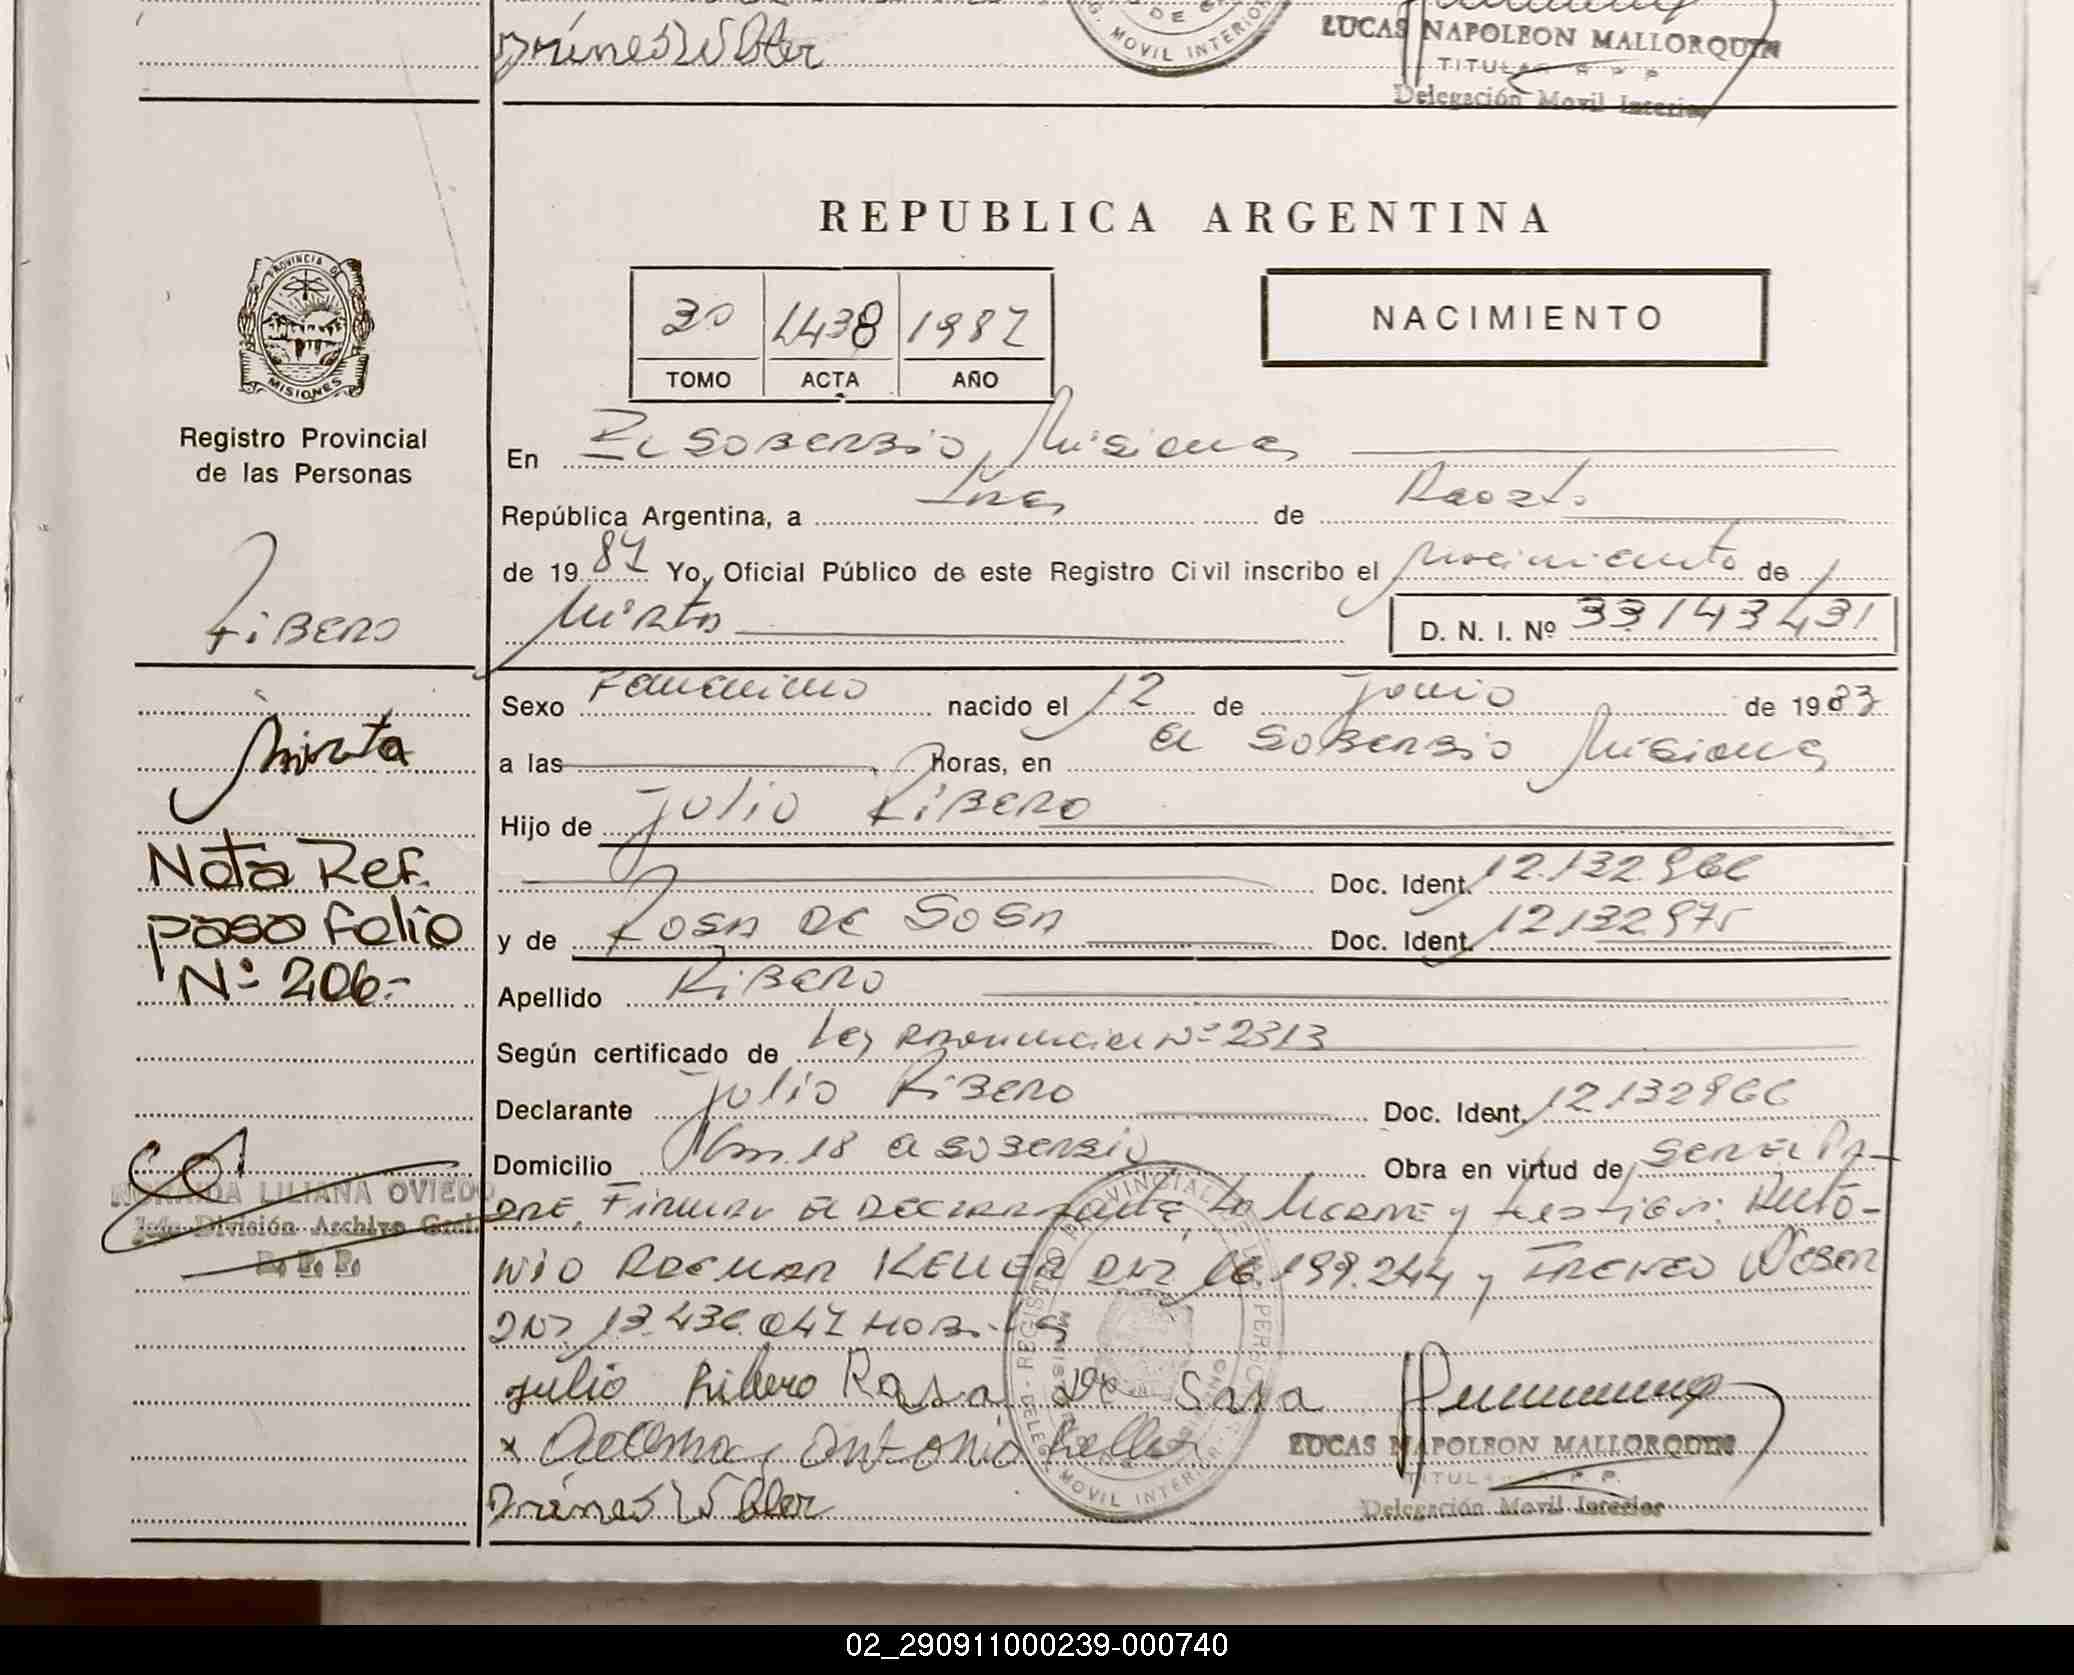 LUCAS NAPOLEON MALLORQUIN
TITULAR R P P
Delegación Movil Interior
MOVIL INTERIOR
REPUBLICA ARGENTINA
PROVINCIA DE
MISIONES
Registro Provincial
de las Personas
30 1438 1987
TOMO ACTA AÑO
NACIMIENTO
En El Soberbio, Misiones
República Argentina, a tres de Agosto
de 19 87 Yo, Oficial Público de este Registro Civil inscribo el nacimiento de
Mirta
D. N. I. Nº 33143431
Ribero
Mirta
Nota Ref.
paso folio
Nº 206.-
NORMIDA LILIANA OVIEDO
Jefe División Archivo Gral.
R. P. P.
Sexo Femenino nacido el 12 de Junio de 1983
a las Horas, en El Soberbio Misiones
Hijo de Julio Ribero
Doc. Ident. 12.132.966
y de Rosa De Sosa Doc. Ident. 12.132.975
Apellido Ribero
Según certificado de Ley provincial Nº 2313
Declarante Julio Ribero Doc. Ident. 12.132966
Domicilio Km. 18 El Soberbio Obra en virtud de, ser el Pa-
dre, Firman el declarante, la Madre y testigos: Anto-
nio Keller DNI 16.199.244 y Ireneo Weber
DNI 13.436.047
Julio Ribero Rosa De Sosa
x Antonio Keller
LUCAS NAPOLEON MALLORQUIN
TITULAR R. P. P.
Delegación Movil Interior
REGISTRO PROVINCIAL DE LAS PERSONAS
MOVIL INTERIOR
02_290911000239-000740